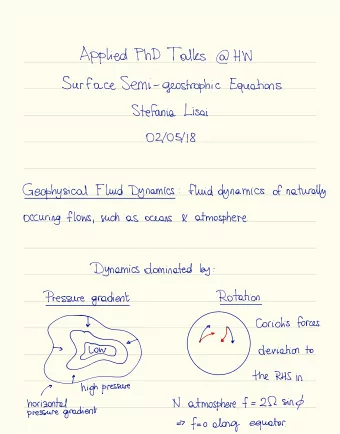 Applied PhD Talks @ HW
Surface Semi-geostrophic Equations
Stefania Lisai
02/05/18
Geophysical Fluid Dynamics : fluid dynamics of naturally
occuring flows, such as oceans & atmosphere
Dynamics dominated by:
Pressure gradient
Rotation
Low
high pressure
horizontal
pressure gradient
Coriolis forces
deviation to
the RHS in
N. atmosphere f = 2Ω sinϕ
⇒ f=0 along equator